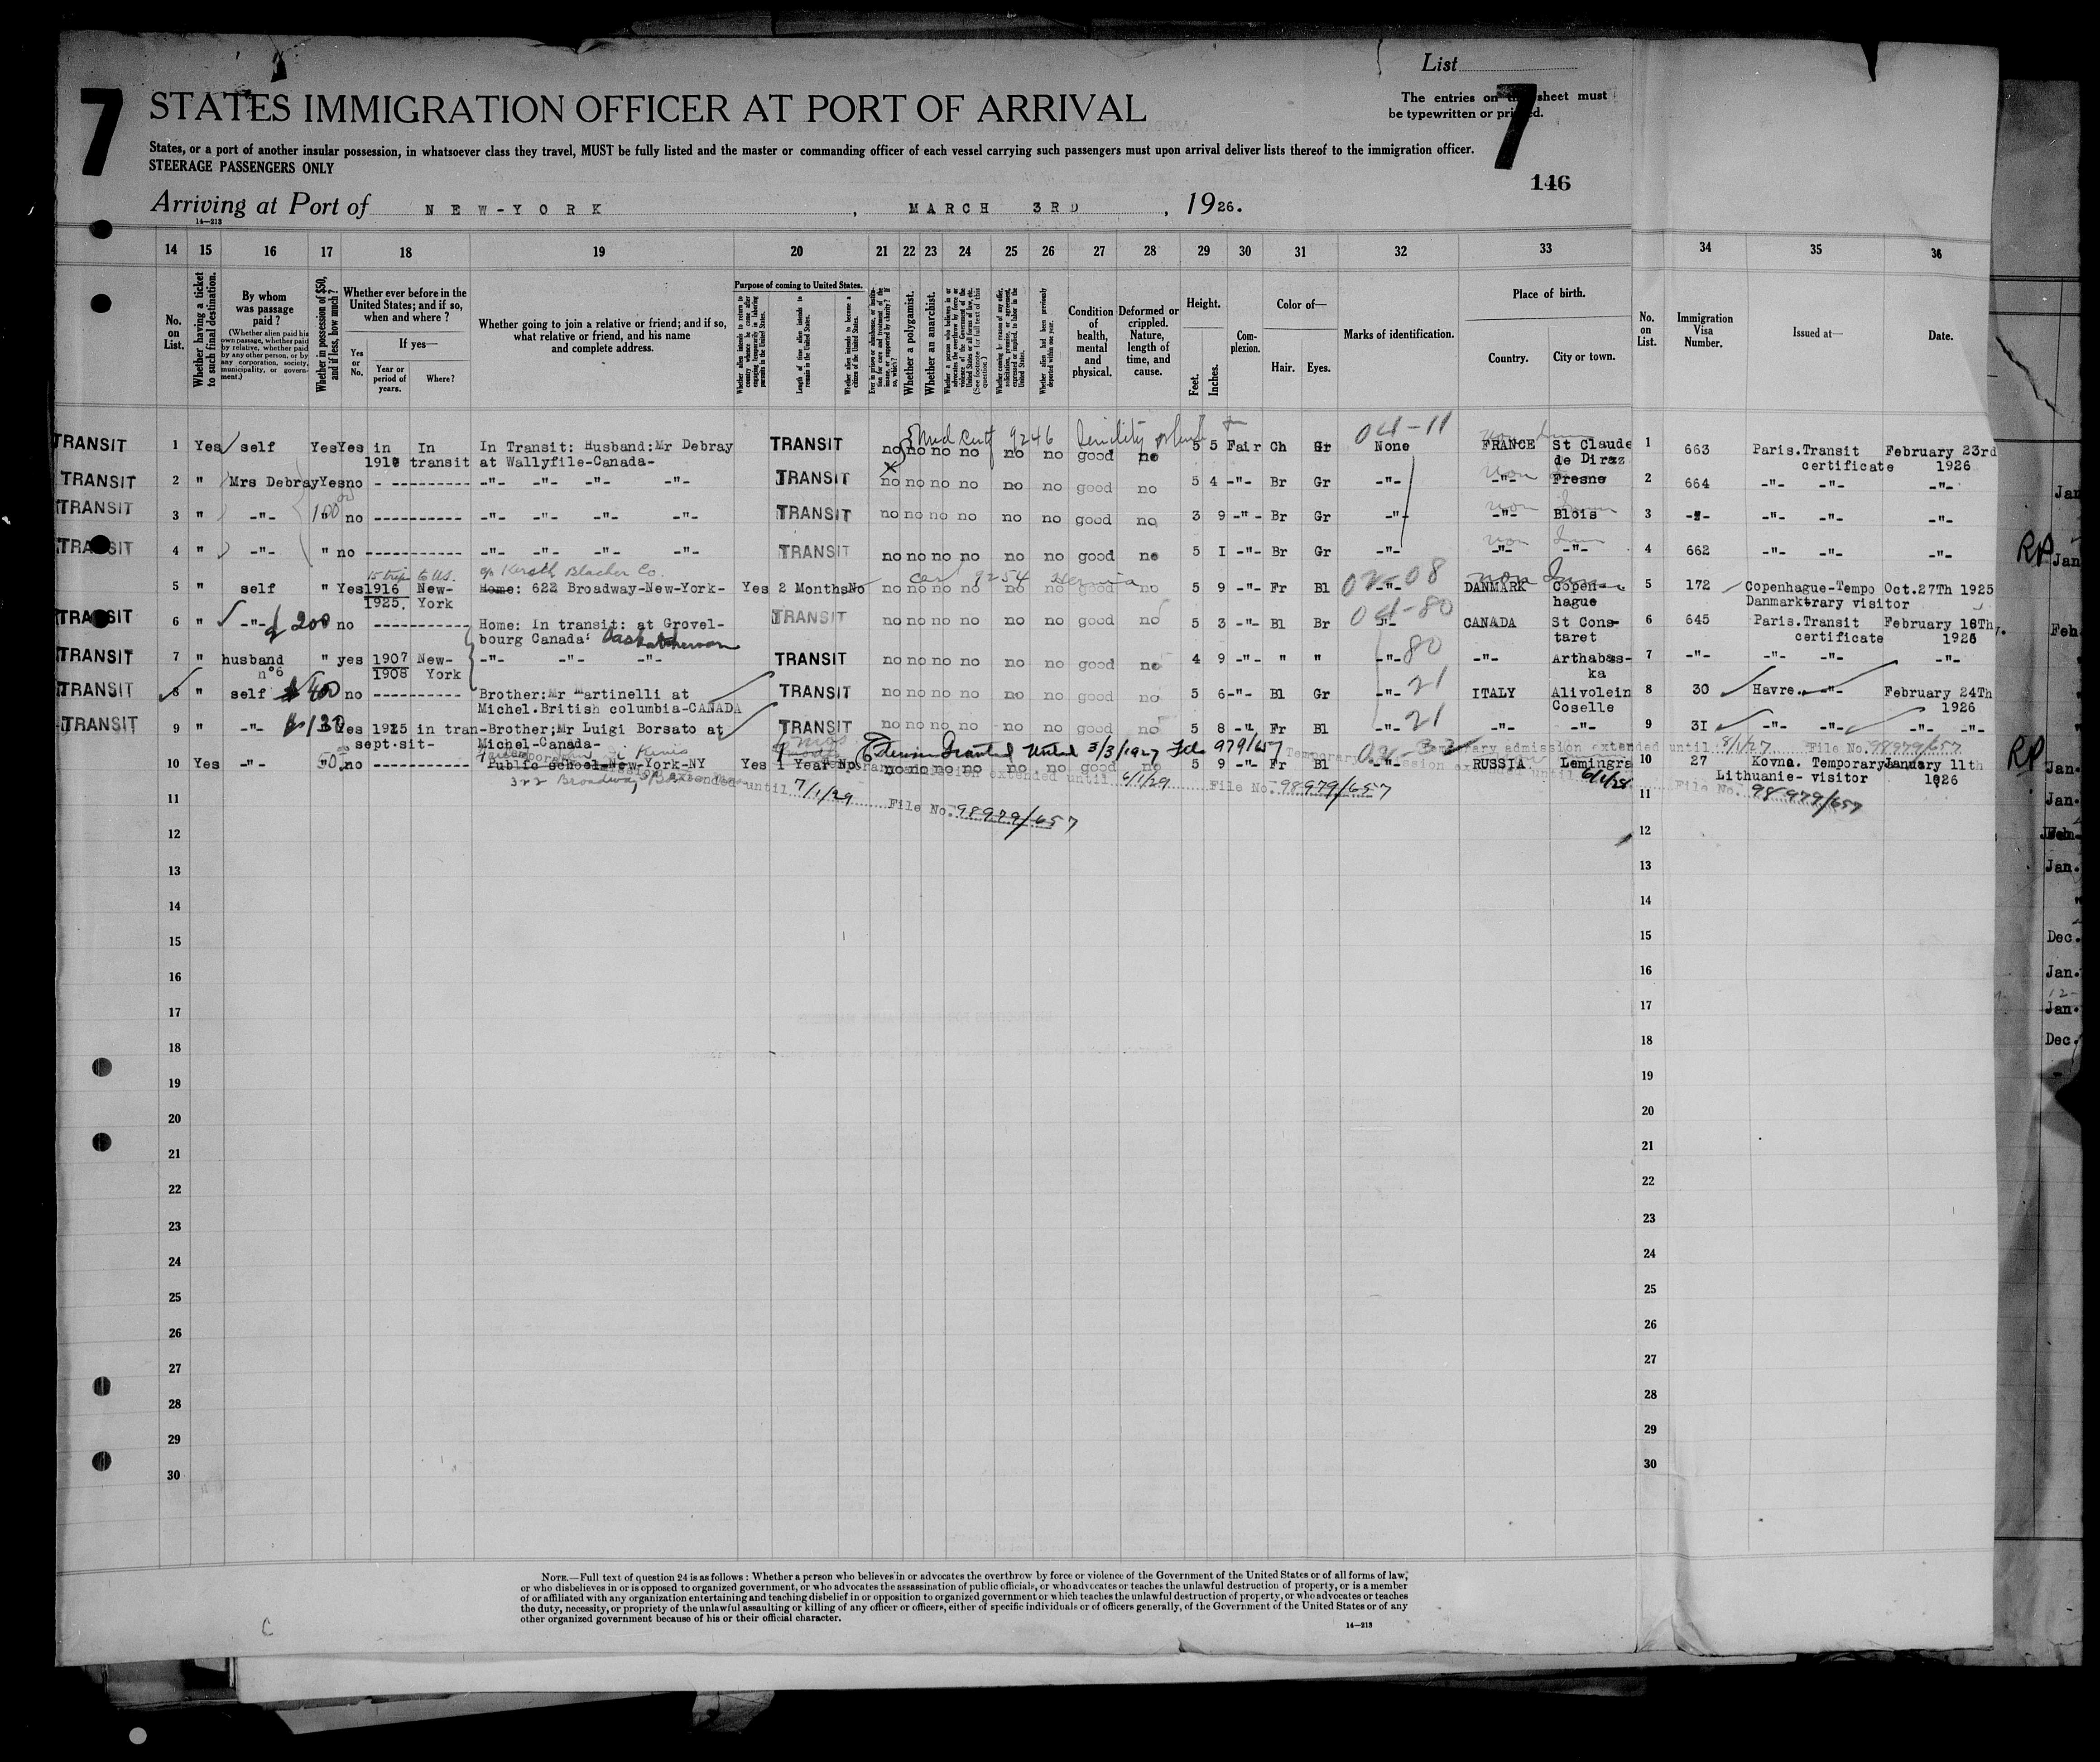 List
7 STATES IMMIGRATION OFFICER AT PORT OF ARRIVAL 7
The entries on this sheet must
be typewritten or printed.
States, or a port of another insular possession, in whatsoever class they travel, MUST be fully listed and the master or commanding officer of each vessel carrying such passengers must upon arrival deliver lists thereof to the immigration officer.
STEERAGE PASSENGERS ONLY
146
Arriving at Port of NEW-YORK, MARCH 3RD, 1926.
14—213
14 15 16 17 18 19 20 21 22 23 24 25 26 27 28 29 30 31 32 33 34 35 36
No. on List.
Whether having a ticket to such final destination.
By whom was passage paid?
(Whether alien paid his own passage, whether paid by relative, whether paid by any other person, or by any corporation, society, municipality, or government.)
Whether in possession of $50, and if less, how much?
Whether ever before in the United States; and if so, when and where?
If yes—
Yes or No.
Year or period of years.
Where?
Whether going to join a relative or friend; and if so, what relative or friend, and his name and complete address.
Purpose of coming to United States.
Whether alien intends to return to country whence he came after engaging temporarily in laboring pursuits in the United States.
Length of time alien intends to remain in the United States.
Whether alien intends to become a citizen of the United States.
Whether a polygamist.
Whether an anarchist.
Condition of health, mental and physical.
Deformed or crippled. Nature, length of time, and cause.
Height.
Feet. Inches.
Complexion.
Color of—
Hair. Eyes.
Marks of identification.
Place of birth.
Country. City or town.
No. on List.
Immigration Visa Number.
Issued at—
Date.
Med Cert 9246 Senility 04-11
TRANSIT 1 Yes self Yes Yes in In In Transit: Husband:Mr Debray TRANSIT no no no no no no good no 5 5 Fair Ch Gr None FRANCE St Claude 1 663 Paris.Transit February 23rd
1910 transit at Wallyfile-Canada- de Diraz certificate 1926
TRANSIT 2 " Mrs Debray Yes no - ---------- -"- -"- -"- -"- TRANSIT no no no no no no good no 5 4 -"- Br Gr -"- -"- Fresne 2 664 -"- -"- -"-
TRANSIT 3 " -"- 100 " no ----------- -"- -"- -"- -"- TRANSIT no no no no no no good no 3 9 -"- Br Gr -"- -"- Blois 3 -"- -"- -"- -"-
TRANSIT 4 " -"- " no ----------- -"- -"- -"- -"- TRANSIT no no no no no no good no 5 I -"- Br Gr -"- -"- -"- 4 662 -"- -"- -"-
15 trips to US. c/o Kerath Blacher Co. cer 9254 Hernia 02-08
5 " self " Yes 1916 New- Home: 622 Broadway-New-York- Yes 2 Months No no no no no no no good no 5 9 -"- Fr Bl -"- DANMARK Copen- 5 172 Copenhague-Tempo Oct.27Th 1925
1925. York hague Danmark trary visitor
TRANSIT 6 " -"- $200 no ----------- Home: In transit: at Grovel- TRANSIT no no no no no no good no 5 3 -"- Bl Br 04-80 -"- CANADA St Cons- 6 645 Paris.Transit February 18Th
bourg Canada: Saskatchewan taret certificate 1926
TRANSIT 7 " husband " yes 1907 New- -"- -"- -"- TRANSIT no no no no no no good no 4 9 -"- " " -"- 80 -"- Arthabas- 7 -"- -"- -"- -"-
n°6 1908 York ka
TRANSIT 8 " self $400 no ---------- Brother:Mr Martinelli at TRANSIT no no no no no no good no 5 6 -"- Bl Gr -"- 21 ITALY Alivolein 8 30 Havre. -"- February 24Th
Michel.British columbia-CANADA Coselle 1926
TRANSIT 9 " -"- $130 Yes 1925 in tran- Brother;Mr Luigi Borsato at TRANSIT no no no no no no good no 5 8 -"- Fr Bl -"- 21 -"- -"- 9 3I -"- -"- -"- -"-
sept. sit- Michel-Canada-
Extension Granted Until 3/3/1927 File 979/657 Temporary admission extended until 8/1/27 File No. 98979/657
10 Yes -"- 50 " no ----------- Public school-New-York-NY Yes 1 Year No no no no no no no good no 5 9 -"- Fr Bl -"- RUSSIA Lemingra 10 27 Kovna. Temporary January 11th
Lithuanie- visitor 1926
322 Broadway extended until 7/1/29 File No. 98979/657
extended until 6/1/29 File No. 98979/657
admission extended until 6/1/28 File No. 98979/657
11 11
12 12
13 13
14 14
15 15
16 16
17 17
18 18
19 19
20 20
21 21
22 22
23 23
24 24
25 25
26 26
27 27
28 28
29 29
30 30
RP
RP
Jan
Jan
Feb
Jan.
Jan.
Jan.
Dec.
Jan.
Jan.
Dec.
NOTE.—Full text of question 24 is as follows: Whether a person who believes in or advocates the overthrow by force or violence of the Government of the United States or of all forms of law,
or who disbelieves in or is opposed to organized government, or who advocates the assassination of public officials, or who advocates or teaches the unlawful destruction of property, or is a member
of or affiliated with any organization entertaining and teaching disbelief in or opposition to organized government or which teaches the unlawful destruction of property, or who advocates or teaches
the duty, necessity, or propriety of the unlawful assaulting or killing of any officer or officers, either of specific individuals or of officers generally, of the Government of the United States or of any
other organized government because of his or their official character.
14—213